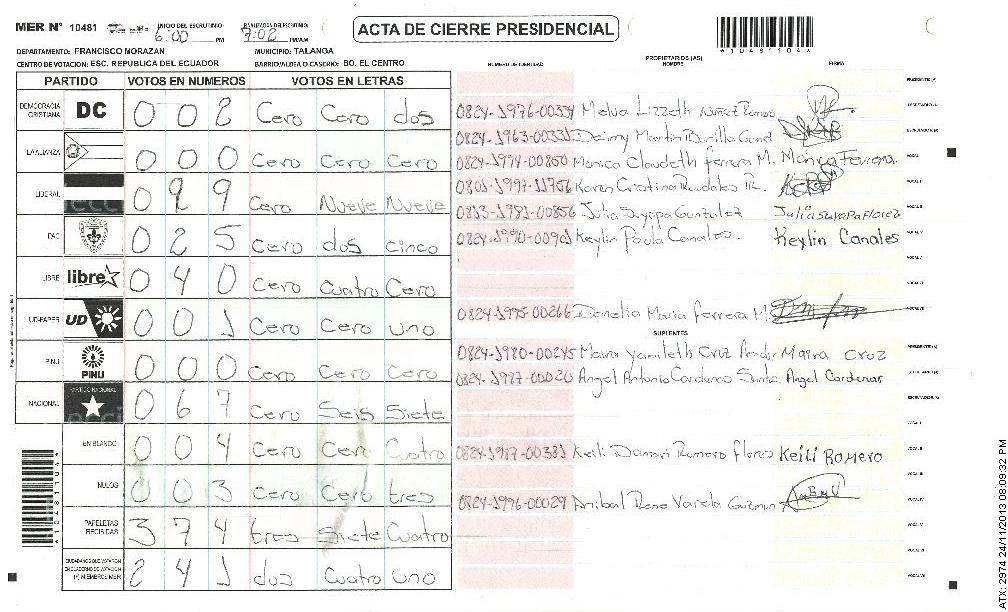 MER N° 10481 INICIO DEL ESCRUTINIO: 6:00 PM FINALIZACION DEL ESCRUTINIO: 7:02 PM/AM
ACTA DE CIERRE PRESIDENCIAL
*10481104*
DEPARTAMENTO: FRANCISCO MORAZAN MUNICIPIO: TALANGA
CENTRO DE VOTACION: ESC. REPUBLICA DEL ECUADOR BARRIO/ALDEA O CASERIO: BO. EL CENTRO
PARTIDO VOTOS EN NUMEROS VOTOS EN LETRAS
DEMOCRACIA CRISTIANA DC 0 0 2 Cero Cero dos
LA ALIANZA 0 0 0 Cero Cero Cero
LIBERAL 0 9 9 Cero Nueve Nueve
PAC 0 2 5 Cero dos cinco
LIBRE libre 0 4 0 Cero Cuatro Cero
UD-FAPER UD 0 0 1 Cero Cero uno
PINU PINU 0 0 0 Cero Cero Cero
NACIONAL 0 6 7 Cero Seis Siete
EN BLANCO 0 0 4 Cero Cero Cuatro
NULOS 0 0 3 Cero Cero tres
PAPELETAS RECIBIDAS 3 7 4 tres Siete Cuatro
CIUDADANOS QUE VOTARON EN CUADERNO DE VOTACION (+) MIEMBROS MER 2 4 1 dos Cuatro uno
NUMERO DE IDENTIDAD PROPIETARIOS (AS) NOMBRE FIRMA
0824-1976-00334 Melva Lizzeth Nuñez Romero
0824-1963-00331 Martin
0824-1974-00850 Monica Claudeth ferrera M. Monica Ferrera
0801-1997-11756 Karen Cristina
0813-1981-00856 Julia Suyapa Gonzalez Julia Suyapa Florez
0824-1990-00901 Keylin Paola Canales. Keylin Canales
0824-1995-00266 Danelia Maria ferrera M.
SUPLENTES
0824-1980-00245 Maira Yamileth Cruz Maira Cruz
0824-1987-00020 Angel Antonio Cardenas Angel Cardenas
0824-1987-00381 Keili Damari Romero flores Keili Romero
0824-1996-00029 Anibal Rene Varela Guzman
ATX: 2974 24/11/2013 08:09:32 PM